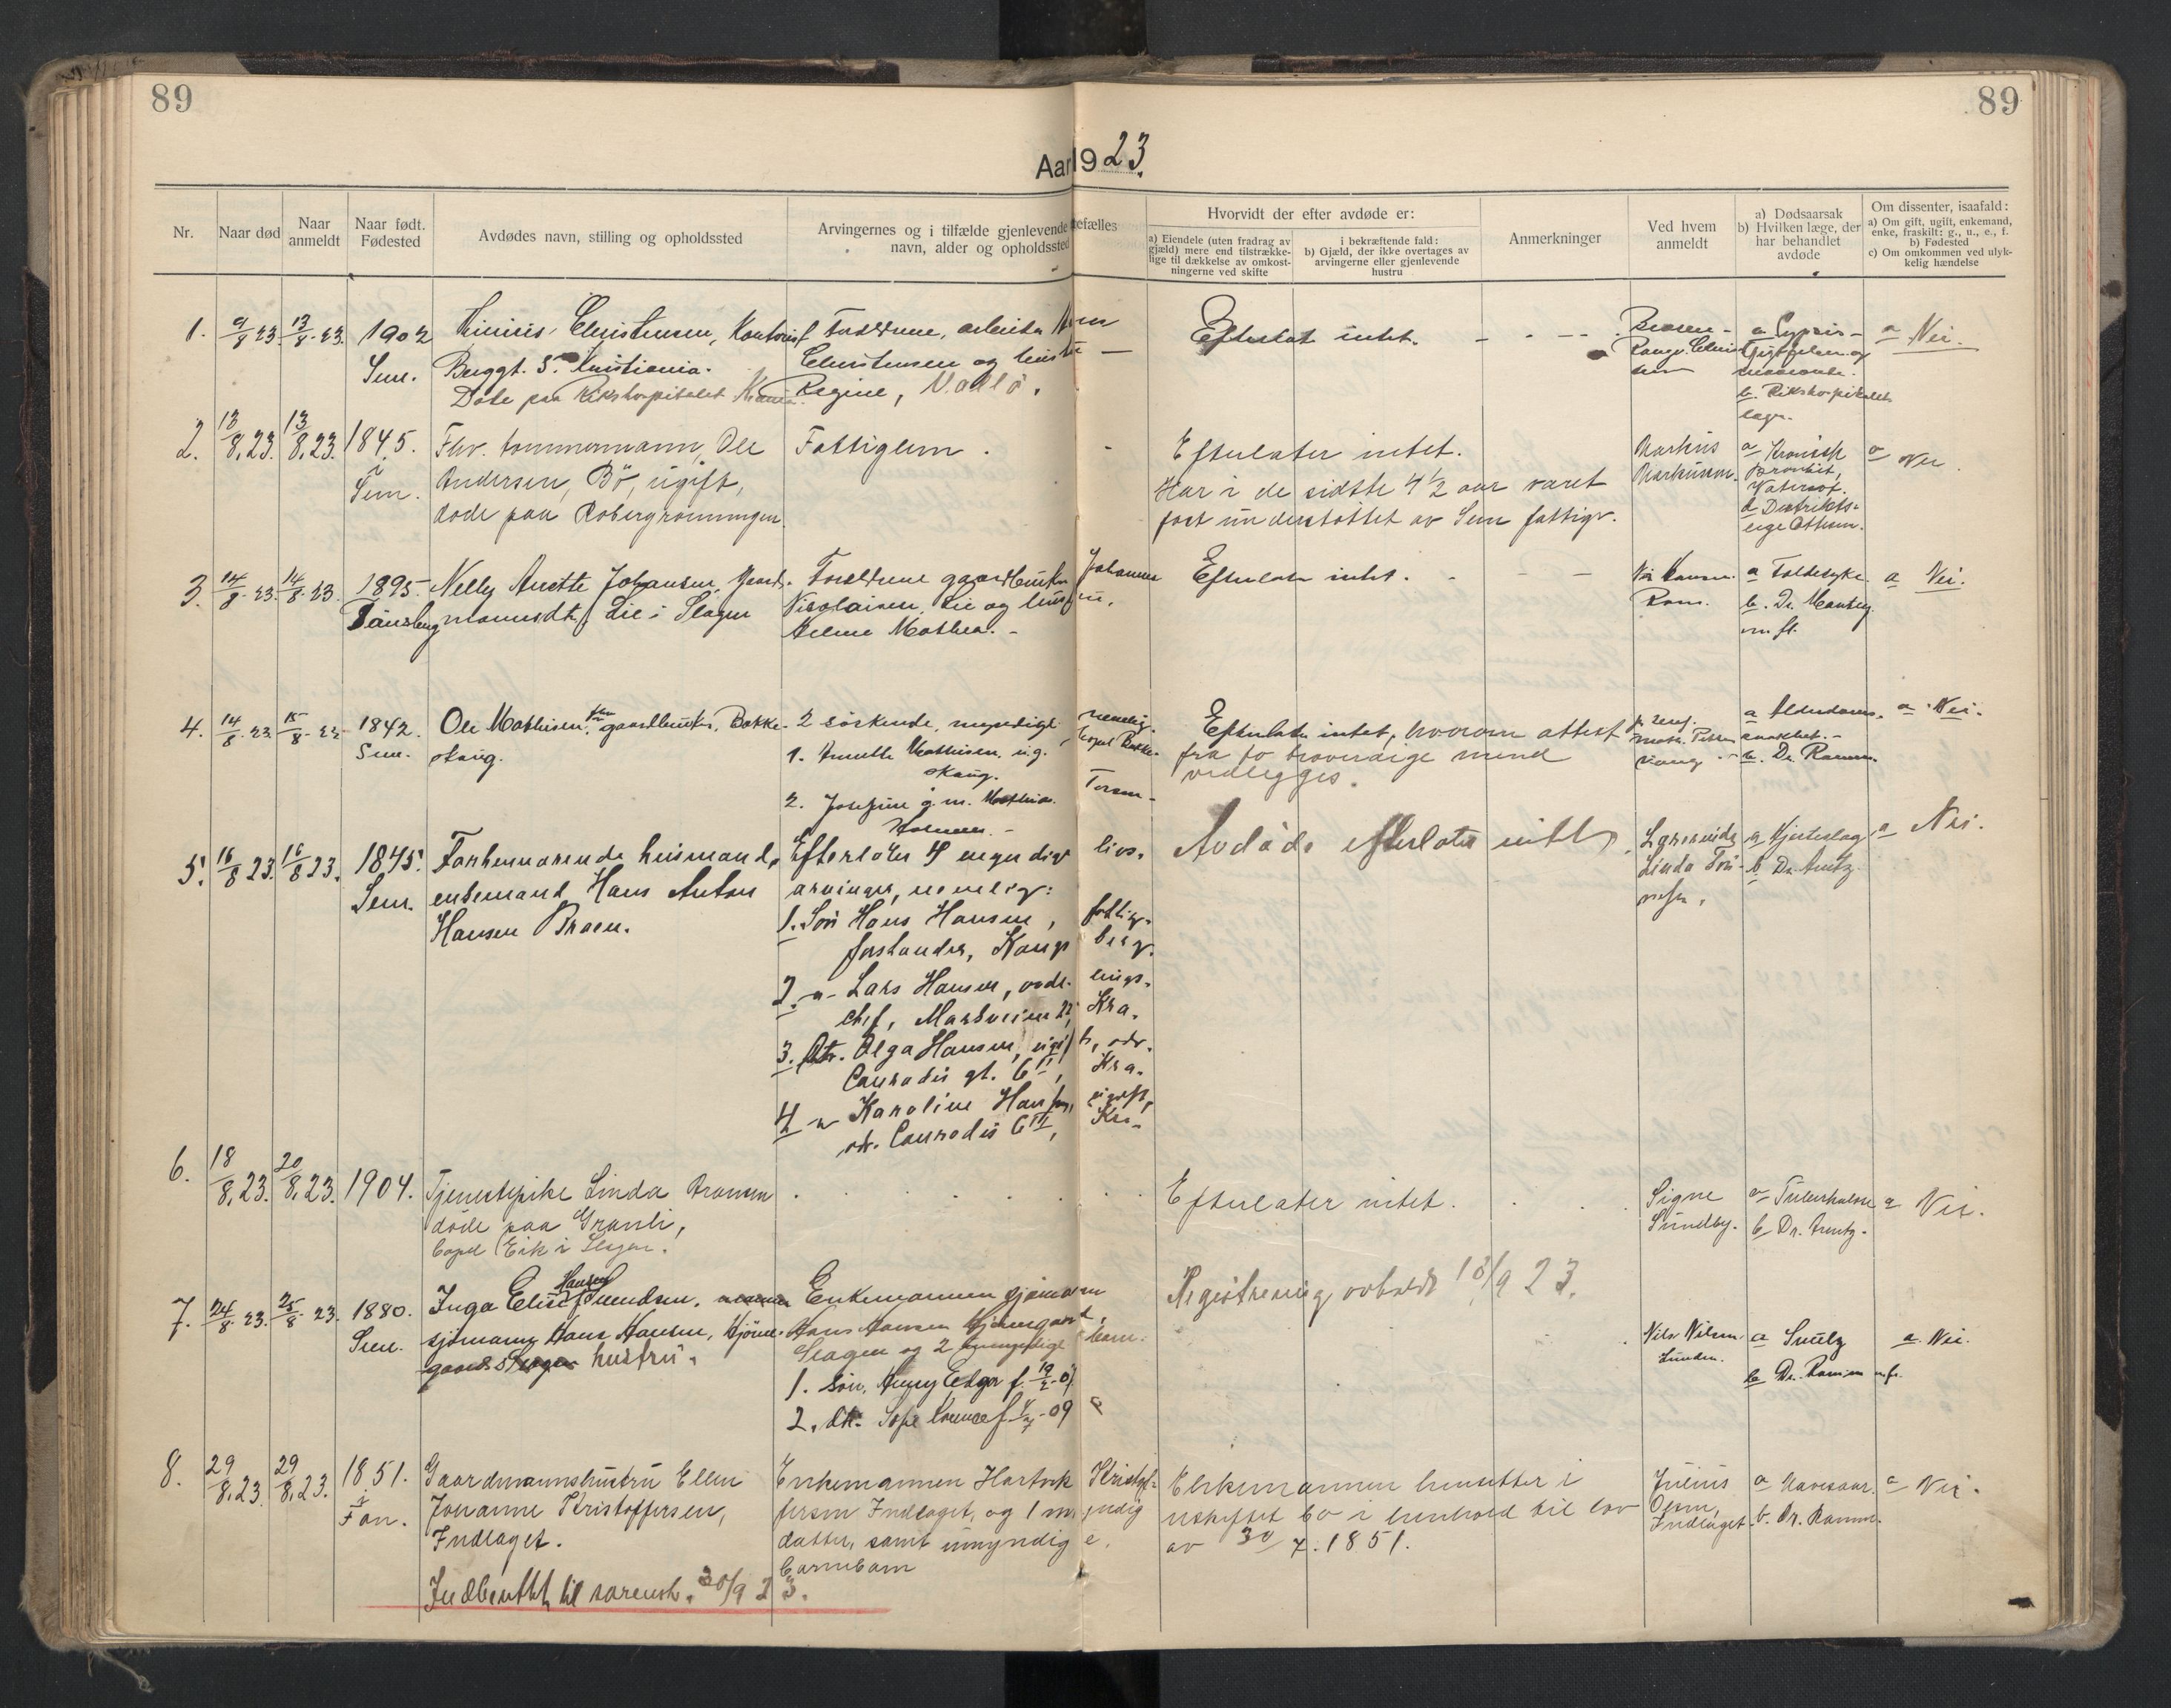 89
89
Aar 1923.
Nr.
Naar død
Naar anmeldt
Naar født. Fødested
Avdødes navn, stilling og opholdssted
Arvingernes og i tilfælde gjenlevende efælles
navn, alder og opholdssted
Hvorvidt der efter avdøde er:
a) Eiendele (uten fradrag av gjæld) mere end tilstrækkelige til dækkelse av omkostningerne ved skifte
i bekræftende fald:
b) Gjæld, der ikke overtages av arvingerne eller gjenlevende hustru
Anmerkninger
Ved hvem anmeldt
a) Dødsaarsak
b) Hvilken læge, der har behandlet avdøde
Om dissenter, isaafald:
a) Om gift, ugift, enkemand, enke, fraskilt: g., u., e., f.
b) Fødested
c) Om omkommen ved ulykkelig hændelse
1. 9/8 23. 13/8 23. 1902 Christensen, Kontorist Forældrene, arbeider
Efterlot intet. a Nei.
Sem. Berggt. 5. Kristiania. Christensen og hustru
Døde paa Rikshospitalet Regine, Vallø.
b. Rikshospitalets
læger.
2. 13/8.23. 13/8.23. 1845. Fhv. tømmermann, Ole Fattiglem.
Efterlater intet. Markus a Kronisk a Nei.
Sem. Andersen, Bø, ugift,
Har i de sidste 4 1/2 aar været Markussen. Bronkit,
døde paa Robergrønningen.
fast understøttet av Sem fattigv. Vatersot.
b Distriktslæge Ottesen.
3. 14/8 23. 14/8 23. 1895. Nelly Anette Johansen, Gaard- Forældrene gaardbruker Johannes
Efterlater intet. Hansen a Faldesyke. a Nei.
Tønsberg mannsdtr., Lie i Slagen Nicolaisen, Lie og hustru,
Ram. b. Dr.
Mathea. m. fl.
4. 14/8 23 15/8 23 1842. Ole Mathisen, fhv gaardbruker, Bakke- 2 søskende, myndige nemlig:
Efterlater intet, hvorom attest a Alderdoms- a Nei.
Sem. skaug. 1. Mathisen, ug.
fra to troverdige mænd svakhet. b. Dr. Ramm.
skaug. vedlegges.
2. Josefine g. m. Mathias
5. 16/8 23. 16/8 23. 1845. Forhenværende husmand, Efterlater 4 myndige livs-
Avdøde efterlater intet a Hjerteslag a Nei.
Sem. enkemand Hans Anton arvinger, nemlig:
Linda b Dr. Arntz.
Hansen Braen. 1. Søn Hans Hansen, fattig-
forstander, Kongsberg.
2. -"- Lars Hansen, avdelings-
chef, 22, Kra.
3. Dtr. Olga Hansen, ugift, adr.
Conradis gt. 6 II, Kra.
4 -"- Karoline Hansen, ugift,
adr. Conradis 6 II, Kra.
6. 18/8.23. 20/8.23. 1904. Tjenestepike Linda Aronsen
Efterlater intet. Signe a Tuberkulose a Nei.
døde paa Granli, Sundby. b Dr. Arntz.
bopel Eik i Slagen.
7. 24/8 23. 25/8 23. 1880. Inga Elise Hansen f. Svendsen, Enkemannen sjømann
Registrering avholdt 18/9 23.
Sem. sjømann Hans Hansen, Hans Hansen
Nils Nilsen a b Dr. Ramm m. fl. a. Nei.
gaard Slagen hustru. Slagen og 2 umyndige barn.
Lunden.
1. Søn, Edgar f. 19/2-07
2. Dtr. f. -09
8. 29/8.23. 29/8.23. 1851. Gaardmannshustru Ellen Enkemannen Hartvik Kristof-
Enkemannen hensitter i Julius a a Nei.
Johanne Kristoffersen, fersen Indlaget, og 1 myndig
uskiftet bo i henhold til lov Olsen,
Indlaget. datter, samt umyndige.
av 30/7.1851. Indlaget. b. Dr. Ramm.
barnebarn
Indberettet til sorensk. 30/9 23.